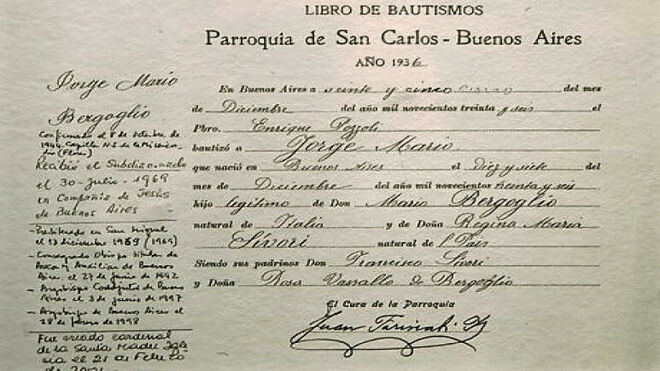 LIBRO DE BAUTISMOS
Parroquia de San Carlos - Buenos Aires
AÑO 1936
En Buenos Aires a veinte y cinco del mes
de Diciembre del año mil novecientos treinta y seis el
Pbro. Enrique Pozzoli
bautizó a Jorge Mario
que nació en Buenos Aires el diez y siete del
mes de Diciembre del año mil novecientos treinta y seis
hijo legítimo de Don Mario Bergoglio
natural de Italia y de Doña Regina María
Sívori natural de l País
Siendo sus padrinos Don Francisco Sívori
y Doña Rosa Vassallo de Bergoglio
El Cura de la Parroquia
Juan
Jorge Mario
Bergoglio
Confirmado el 8 de octubre de
1944 Capilla de la Misericor
dia (Flores)
Recibió el Subdiaconado
el 30-julio-1969
en Compañía de Jesús
de Buenos Aires
Presbiterado en San Miguel
el 13 diciembre 1969 (1969)
Consagrado Obispo titular de
Auca y Auxiliar de Buenos
Aires el 27 de junio de 1992
Arzobispo Coadjutor de Buenos
Aires el 3 de junio de 1997
Arzobispo de Buenos Aires el
28 de febrero de 1998
Fue creado cardenal
de la Santa Madre Igle
sia el 21 de Febrero